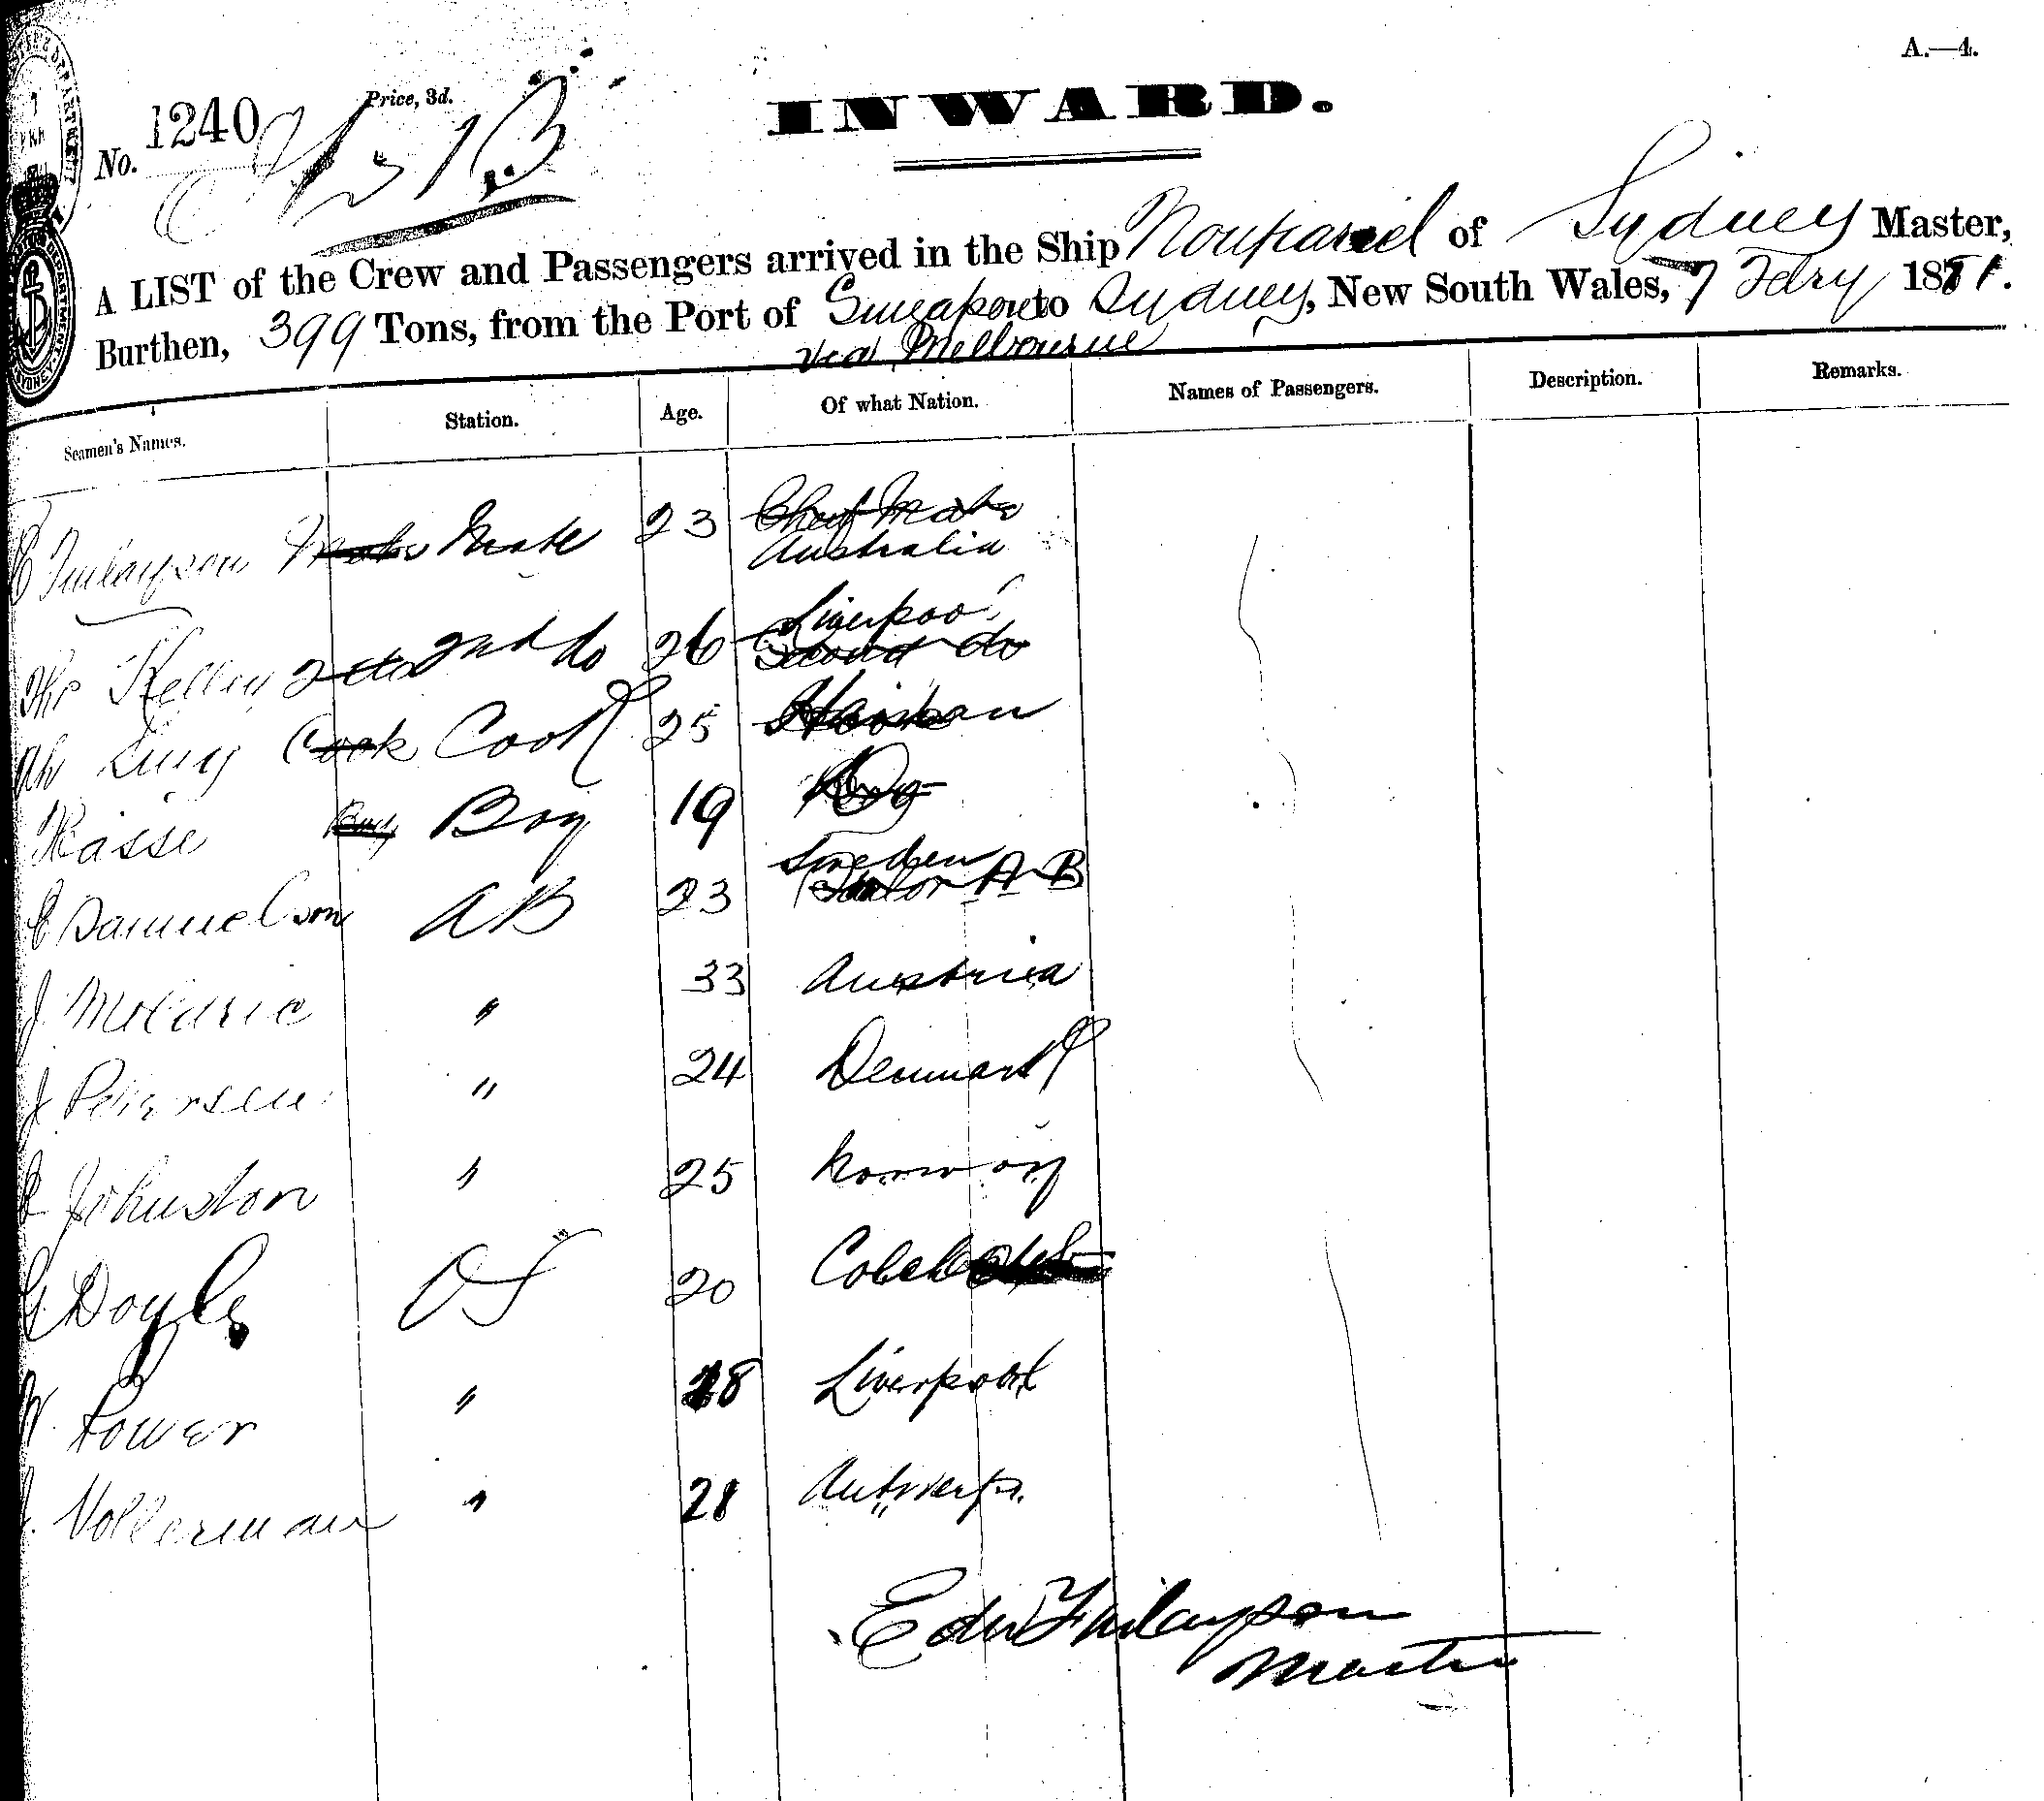 A.—4.
Price, 3d.
No. 1240
INWARD.
A LIST of the Crew and Passengers arrived in the Ship Nonparied of Sydney Master,
Burthen, 399 Tons, from the Port of Singapore to Sydney, New South Wales, 7 Febry 1881.
via Melbourne
Seamen's Names. Station. Age. Of what Nation. Names of Passengers. Description. Remarks.
E Finlayson Mate Mate 23 Chief Mate
Australia
Liverpool
Thos Kelley 2nd do 26 Second do
Ah Ling Cook Cook 25
Kasse Boy Boy 19 Boy
Sweden
C Samuelson AB 23 Sailor A B
J Moldric " 33 Austria
J Petersen " 24 Denmark
Johnston " 25 Norway
G Doyle OS 20
W. Power " 28 Liverpool
J. Vollerman " 28 Antwerp.
Edw Finlayson
Master